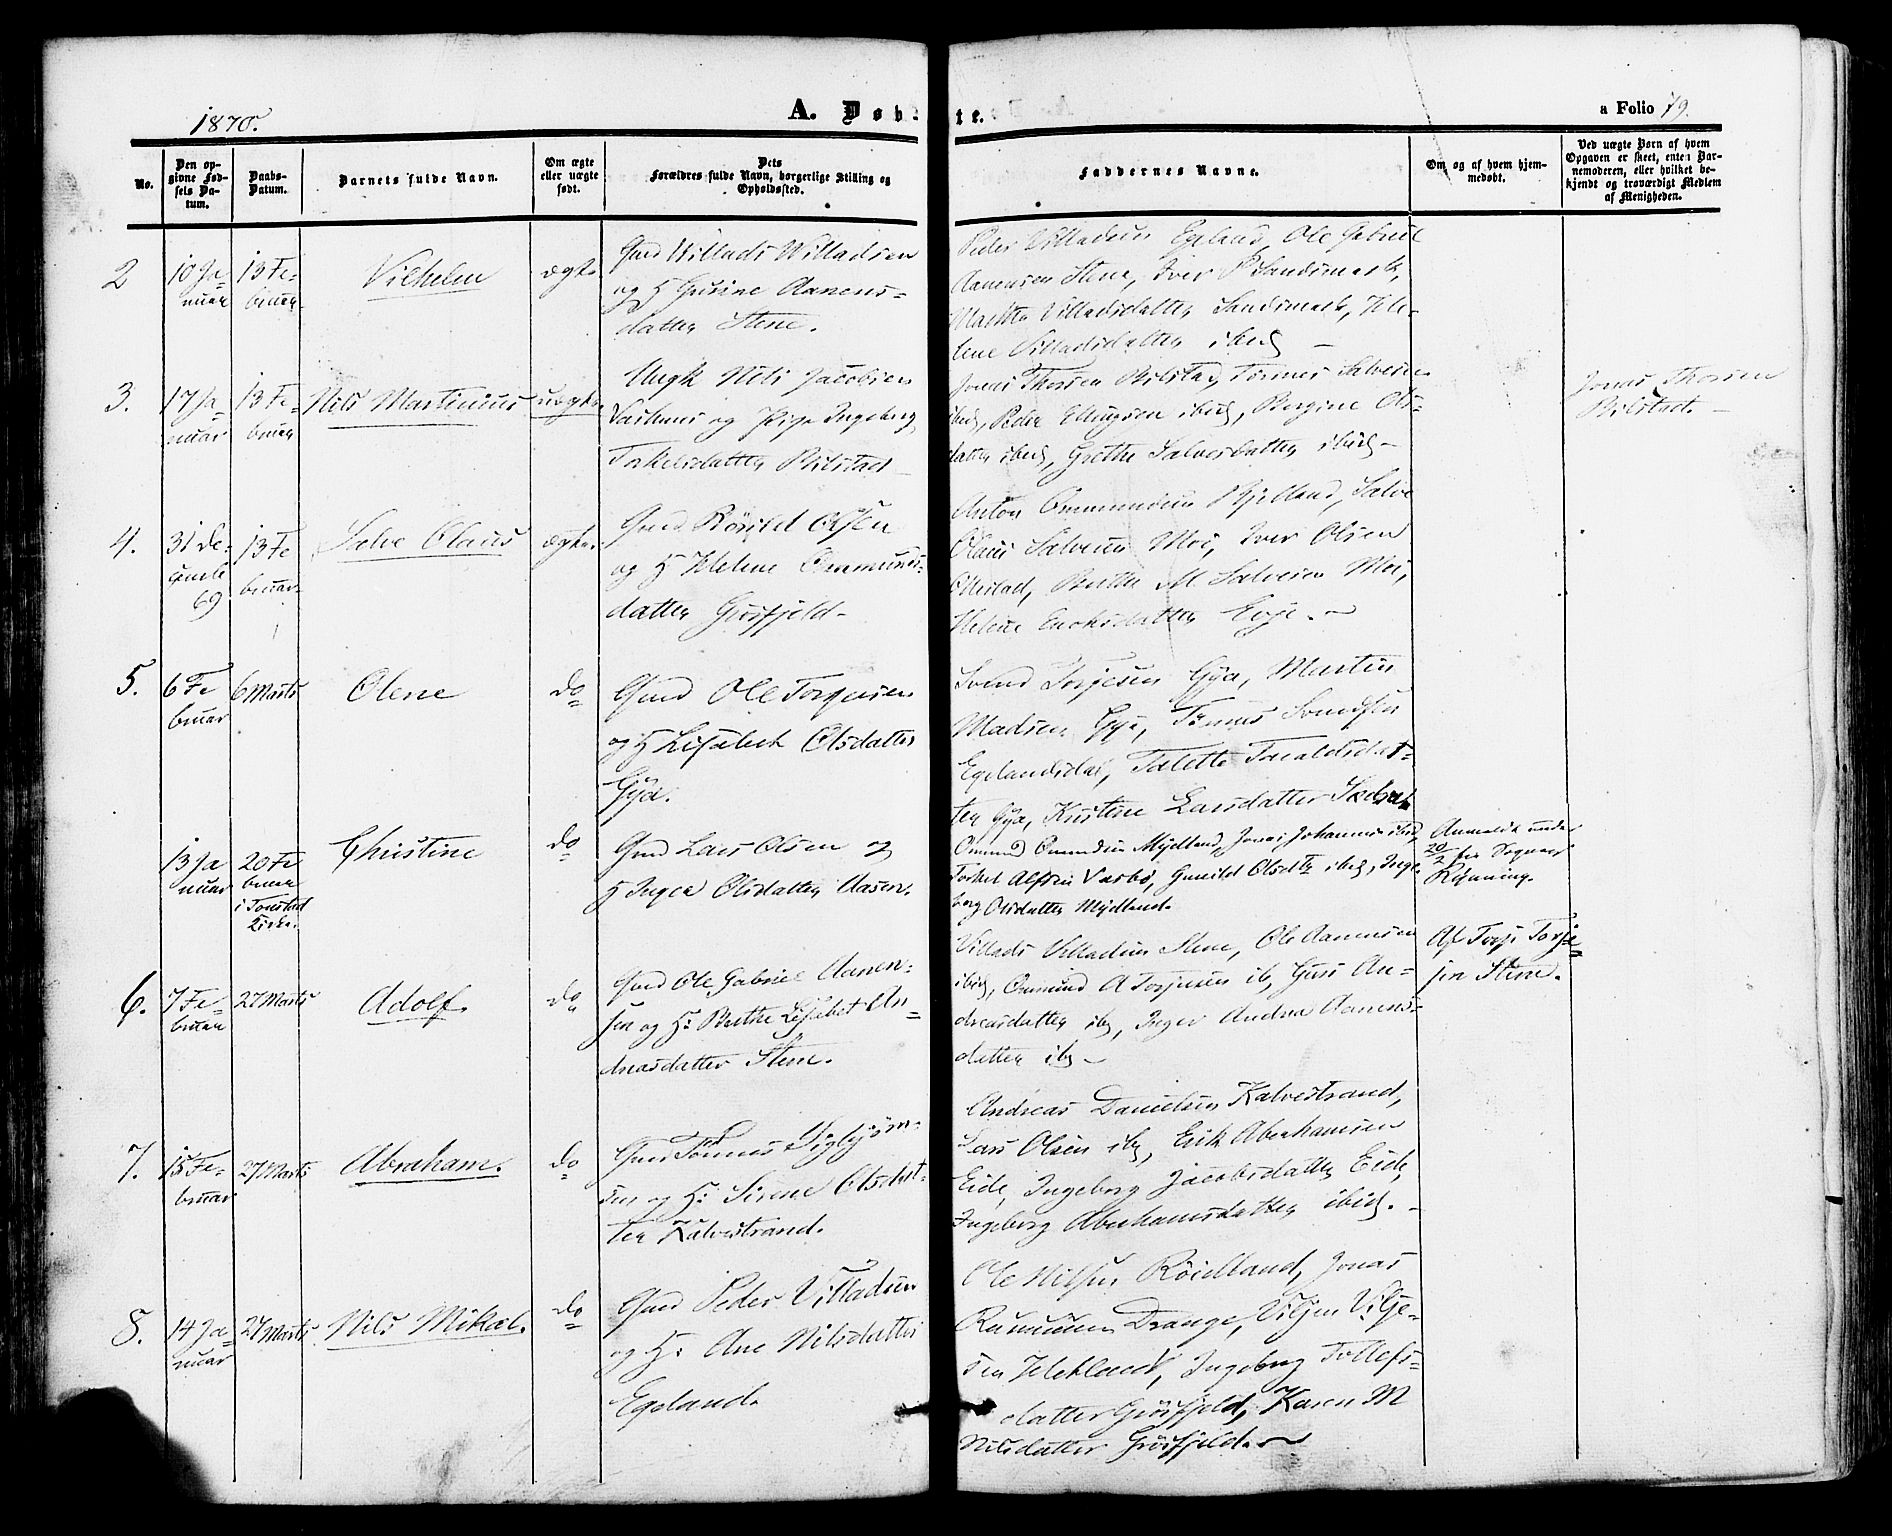 1870.
A. Døbte.
a Folio 79.
No.
Den opgivne Fødsels Datum.
Daabs-Datum.
Barnets fulde Navn.
Om ægte eller uægte født.
Dets Forældres fulde Navn, borgerlige Stilling og Opholdssted.
Faddernes Navne.
Om og af hvem hjemmedøbt.
Ved uægte Børn af hvem Opgaven er skeet, enten Barnemoderen, eller hvilket bekjendt og troværdigt Medlem af Menigheden.
2
10 Ja-
nuar
13 Fe-
bruar
Vilhelm
ægte
Gmd Willads Willadsen
og H Gusine Aanens-
datter Stene.
Peder Villadsen Egeland, Ole Gabriel
Aanensen Stene, Iver P Sandsmark,
Marthe Villadsdatter Sandsmark, Hele-
lene Villadsdatter ibid –
3.
17 Ja-
nuar
13 Fe-
bruar
Nils Martinius
uægte
Ungk Nils Jacobsen
og Pige Ingeborg
Torkelsdatter Bilstad –
Jonas Thorsen Bilstad, Tønnes Salvesen
ibid, Peder Ellingsen ibid, Bergine Ols-
datter ibid, Grethe Salvesdatter ibid –
Jonas Thorsen
Bilstad. –
4.
31 De-
cembr
69
13 Fe
bruar
Salve Olaus
ægte.
Gmd Røinld Olsen
og H Helene Ommunds-
datter Grøsfjeld –
Anton Ommundsen Bjelland, Salve
Olaus Salvesen Moi, Iver Olsen
Ollestad, Berthe M. Salvesen Moi,
Helene Enoksdatter Evje. –
5.
6 Fe
bruar
6 Marts
Olene
do
Gmd Ole Torgersen
og H Lisabeth Olsdatter
Gya.
Svend Torjesen Gya, Martin
Madsen Gya, Tønnes Svendsen
Egelandsdal, Talette Torvaldsdat-
ter Gya, Kirstine Larsdatter
13 Ja
nuar
20 Fe
bruar
i Tonstad
Kirke.
Christine
do
Gmd Lars Olsen og
H Inger Olsdatter Aasen.
Ommund Ommundsen Mydland, Jonas Johannesen ibid,
Torkel Alfsen Vasbø, Gunild Olsdtr ibid, Inge-
borg Olsdatter Mydland.
Anmeldt under
20/2 fra Sogner
6.
7 Fe-
bruar
27 Marts
Adolf.
do
Gmd Ole Gabriel Aanen-
sen og H: Berthe Lisabet An-
dreasdatter Stene.
Villads Villadsen Stene, Ole Aanensen
ibid, Ommund A Torjesen ib, Guri An-
dreasdatter ib, Inger Andrea Aanens-
datter ib –
Af Torje Torje
sen Stene.
7.
15 Fe-
bruar
27 Marts
Abraham.
do
Gmd Tønnes Sigbjørn-
sen og H: Sirene Olsdat-
ter Kalvestrand.
Andreas Danielsen Kalvestrand,
Lars Olsen ib, Erik Abrahamsen
Eide, Ingeborg Jacobsdatter Eide,
Ingeborg Abrahamsdatter ibid. –
8.
14 Ja-
nuar
27 Marts
Nils Mikal.
do
Gmd Peder Villadsen
og H: Ane Nilsdatter
Egeland.
Ole Nilsen Røidland, Jonas
Rasmussen Drange, Viljen Vilje-
sen Helleland, Ingeborg Tollefs-
datter Grøsfjeld, Karen M
Nilsdatter Grøsfjeld. –